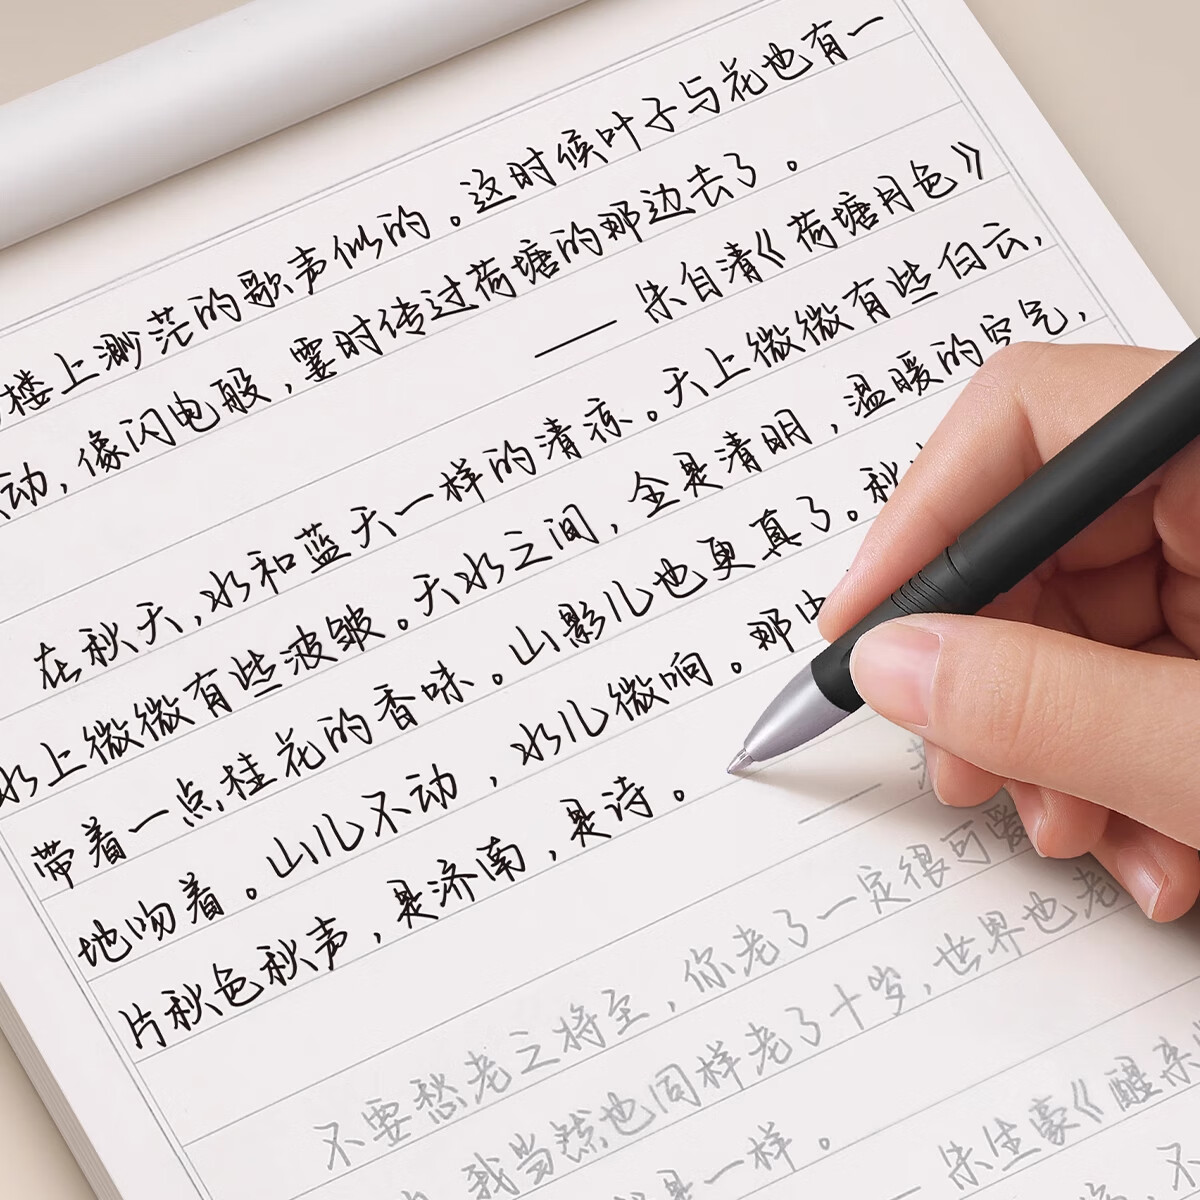 楼上渺茫的歌声似的。这时候叶子与花也有一
动，像闪电般，霎时传过荷塘的那边去了。
——朱自清《荷塘月色》
在秋天，水和蓝天一样的清凉。天上微微有些白云，
水上微微有些波皱。天水之间，全是清明，温暖的空气，
带着一点桂花的香味。山影儿也更真了。秋
地吻着。山儿不动，水儿微响。那中
片秋色秋声，是济南，是诗。
——老
不要愁老之将至，你老了一定很可爱
我当然也同样老了十岁，世界也老
是一样。
朱生豪《醒来
不